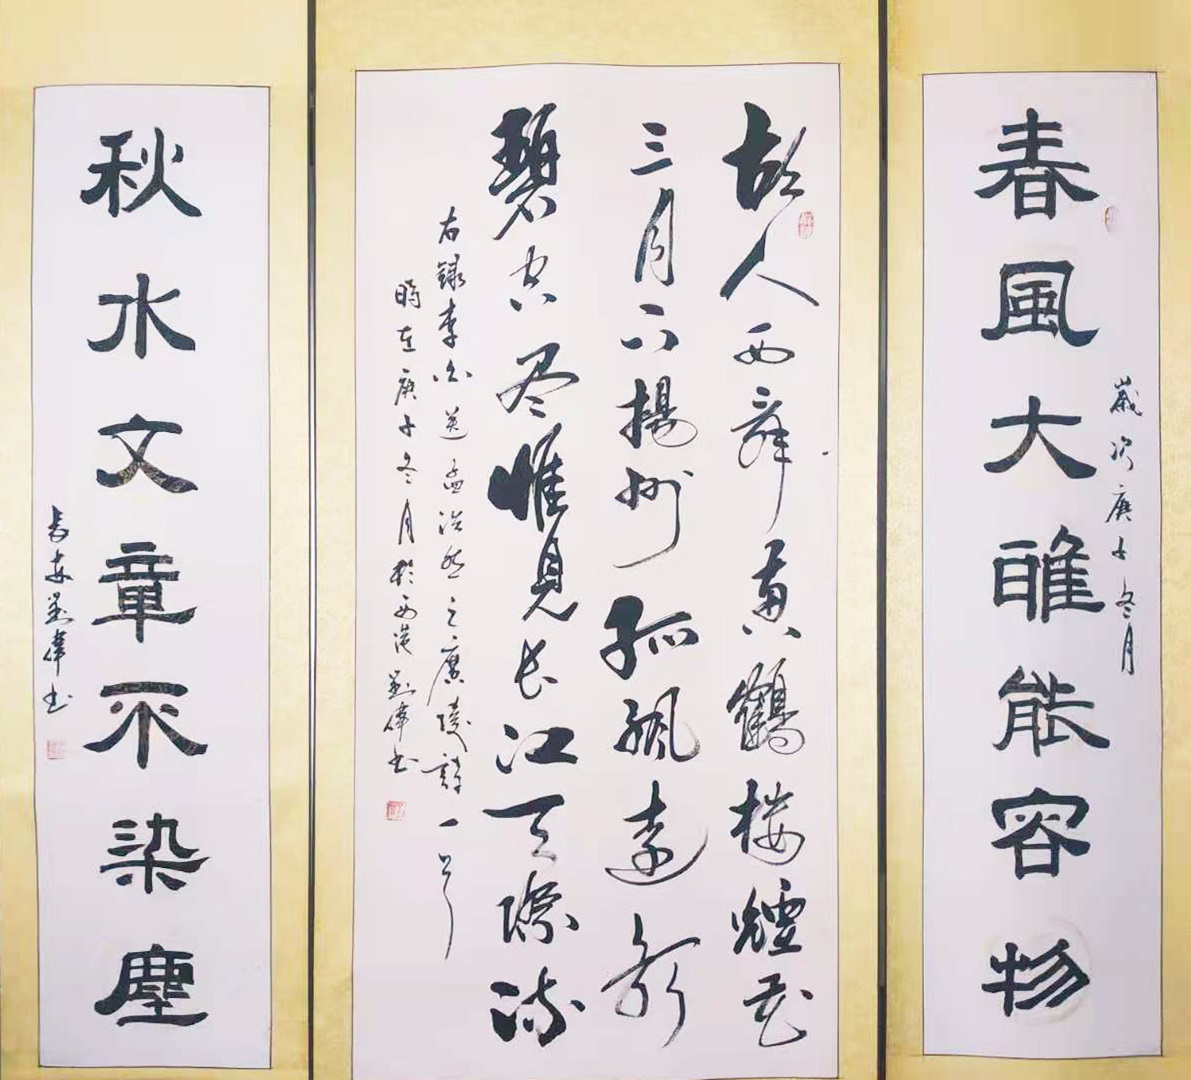 春風大雅能容物
歲次庚子冬月
故人西辞黄鶴楼煙花
三月下揚州孤帆遠影
碧空尽惟見长江天際流
右録李白送孟浩然之廣陵詩一首
時在庚子冬月於西劉偉书
秋水文章不染塵
長安劉偉书